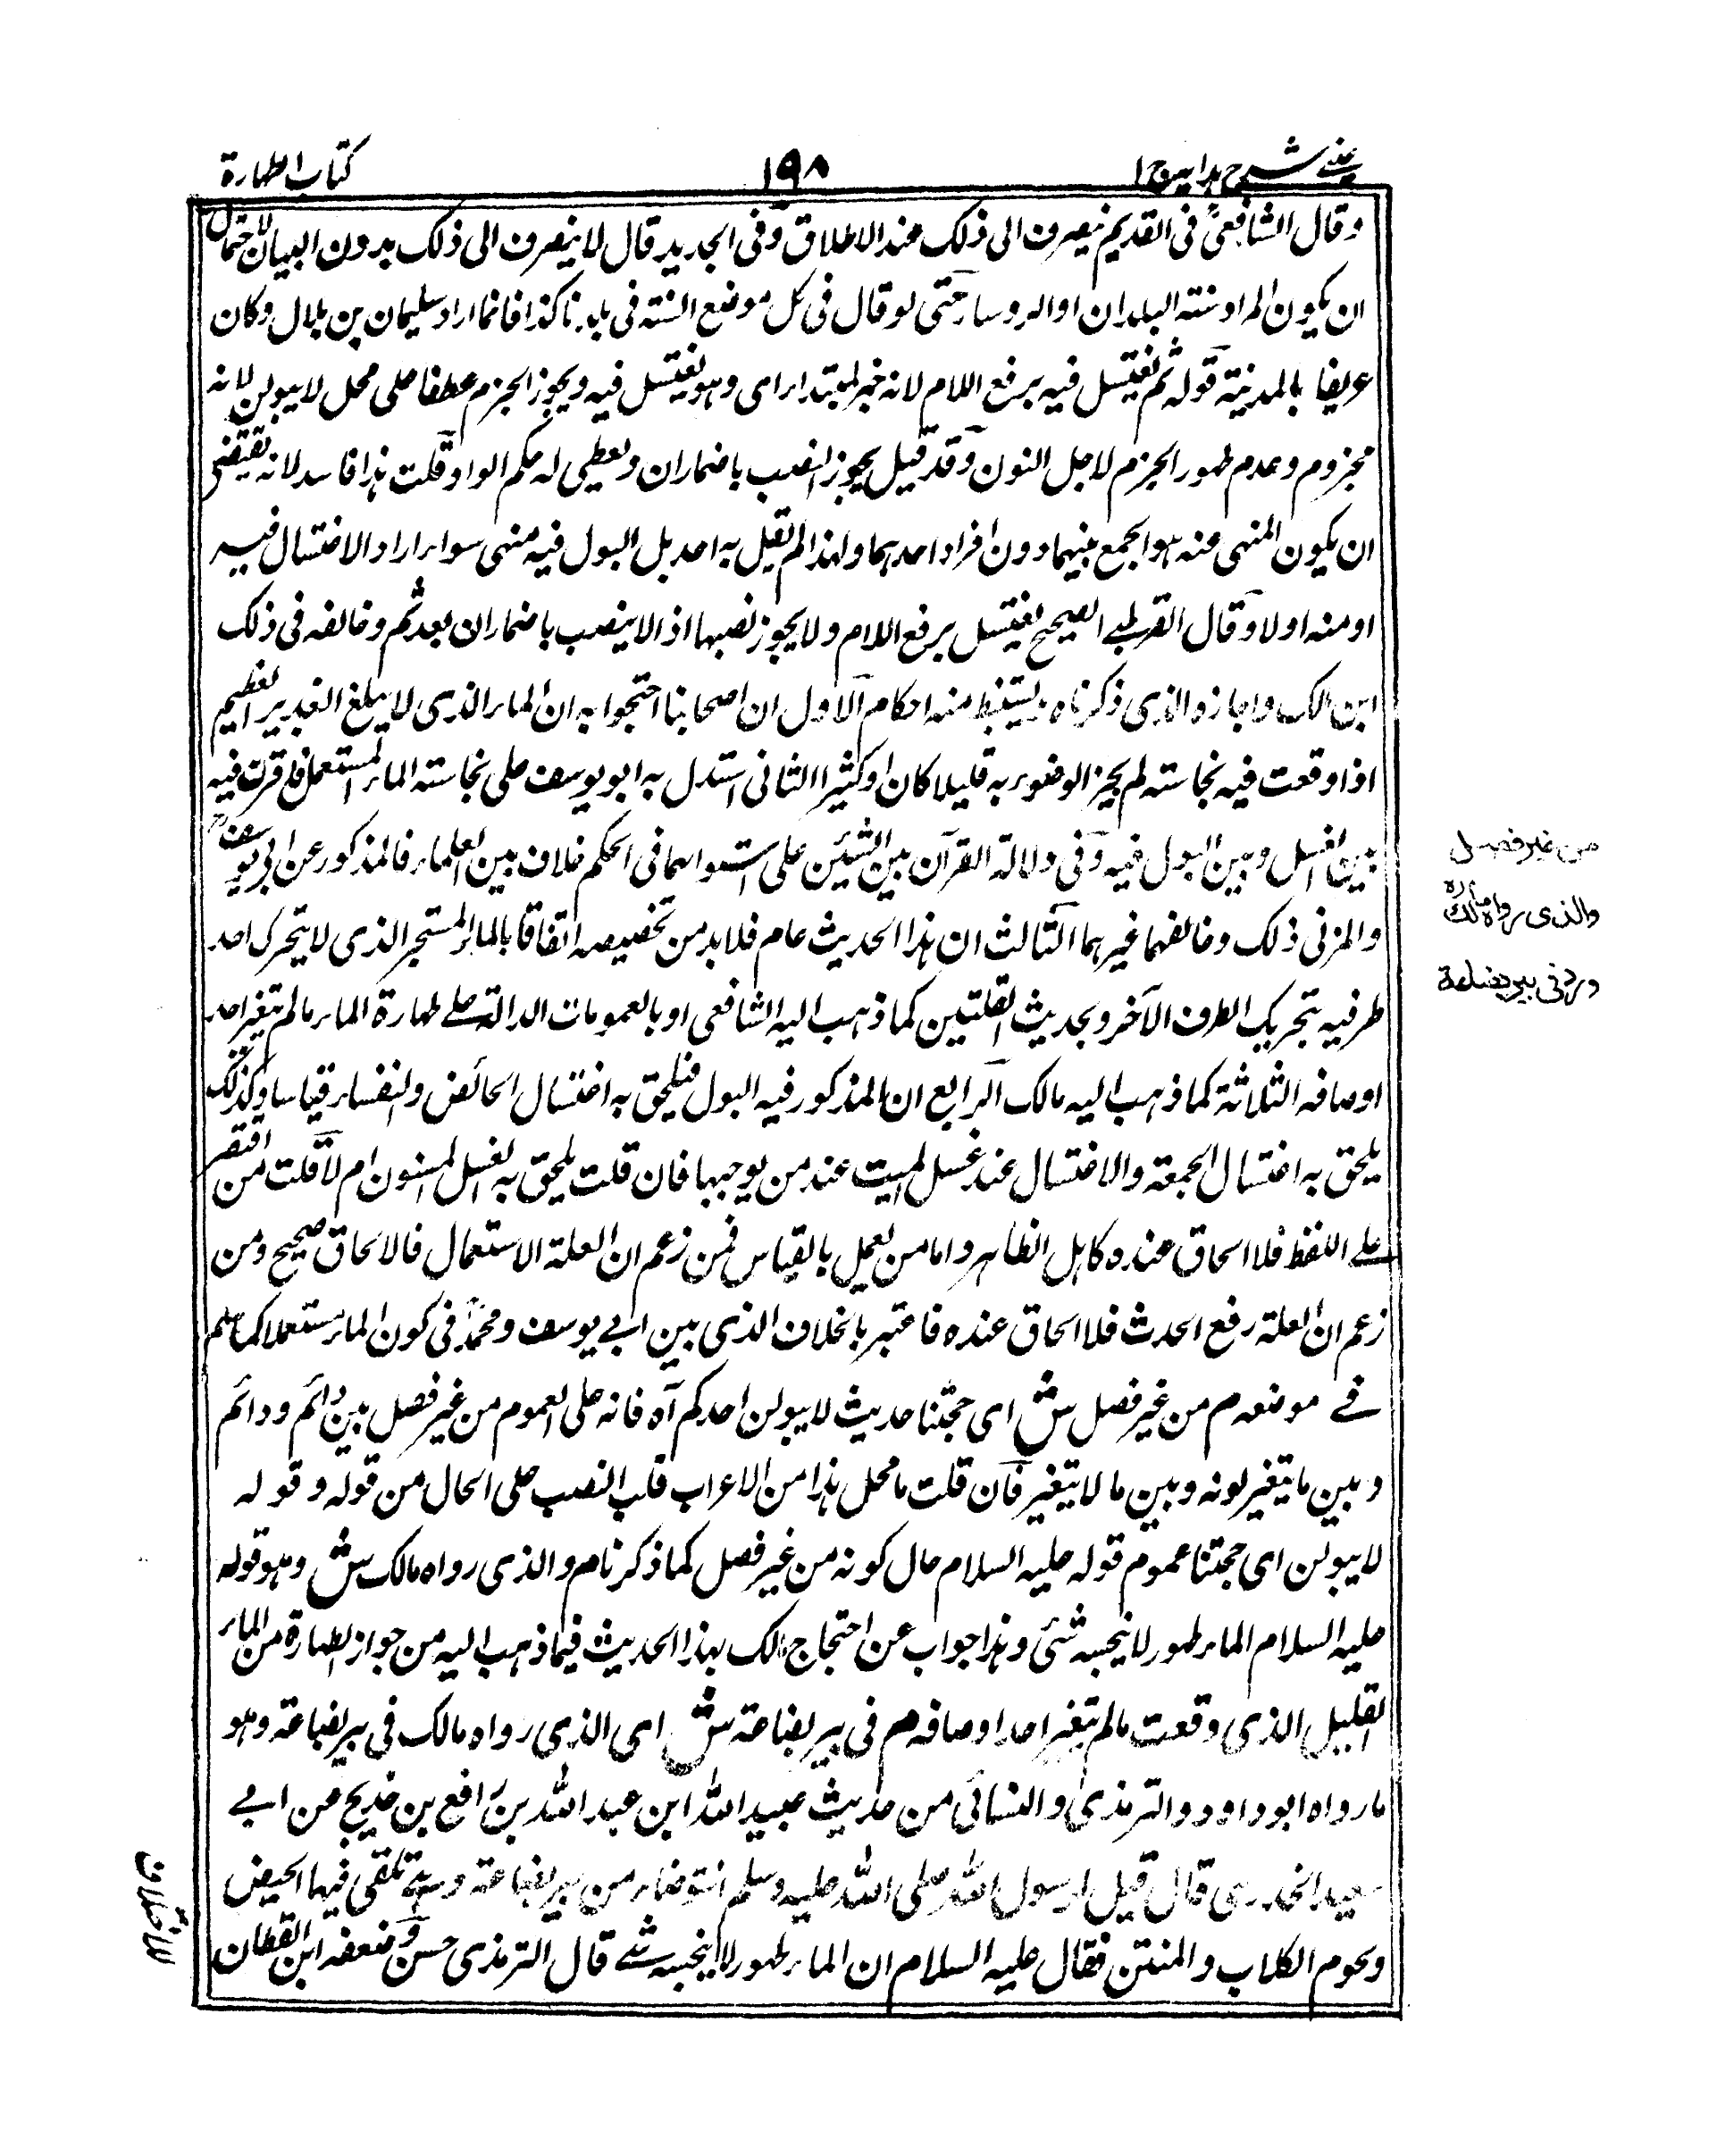 عینی شرح ہدایہ ج ۱
۱۹۸
کتاب الطهارة
وقال الشافعیؒ فی القدیم ینصرف الی ذلک عند الاطلاق وفی الجدید قال لا ینصرف الی ذلک بدون البیان لاحتمال
ان یکون المراد سنته البلدان او الروسا حتی لو قال فی کل موضع السنة فی بلدنا کذا فانما اراد سلیمان بن بلال وکان
عریفا بالمدینة قوله ثم یغتسل فیه برفع اللام لانه خبر لمبتدا ای وهو یغتسل فیه ویجوز الجزم عطفا علی محل لا یبولن لانه
مجزوم وعدم ظهور الجزم لاجل النون وقد قیل یجوز النصب باضمار ان ویعطی له حکم الواو قلت هذا فاسد لانه یقتضی
ان یکون المنهی عنه هو الجمع بینهما دون افراد احدهما ولهذا لم یقل به احد بل البول فیه منهی سواء اراد الاغتسال فیه
او منه اولا وقال القرطبی الصحیح یغتسل برفع اللام ولا یجوز نصبها اذ لا ینصب باضمار ان بعد ثم وخالفه فی ذلک
ابن مالک واجازه والذی ذکرناه یستنبط منه احکام الاول ان اصحابنا احتجوا به ان الماء الذی لا یبلغ الغدیر العظیم
اذا وقعت فیه نجاسته لم یجز الوضوء به قلیلا کان او کثیرا الثانی استدل به ابو یوسف علی نجاسته الماء المستعمل فانه قرن فیه
بین الغسل وبین البول فیه وفی دلالة القرآن بین الشیئین علی استوائهما فی الحکم خلاف بین العلماء فالمذکور عن ابی یوسفؒ
والمزنی ذلک وخالفهما غیرهما الثالث ان هذا الحدیث عام فلابد من تخصیصه اتفاقا بالماء المستبحر الذی لا یتحرک احد
طرفیه بتحریک الطرف الآخر وبحدیث القلتین کما ذهب الیه الشافعی او بالعمومات الدالة علی طهارة الماء مالم یتغیر احد
اوصافه الثلاثة کما ذهب الیه مالک الرابع ان المذکور فیه البول فیلحق به اغتسال الحائض والنفساء قیاسا وکذلک
یلحق به اغتسال الجمعة والاغتسال عند غسل المیت عند من یوجبها فان قلت یلحق به الغسل المسنون ام لا قلت من اقتصر
علی اللفظ فلا الحاق عنده کاهل الظاهر واما من یعمل بالقیاس فمن زعم ان العلة الاستعمال فالالحاق صحیح ومن
زعم ان العلة رفع الحدث فلا الحاق عنده فاعتبر بالخلاف الذی بین ابی یوسف ومحمدؒ فی کون الماء مستعملا کما علم
فی موضعه م من غیر فصل ش ای حجتنا حدیث لا یبولن احدکم آه فانه علی العموم من غیر فصل بین دائم ودائم
وبین ما یتغیر لونه وبین ما لا یتغیر فان قلت ما محل هذا من الاعراب قلت النصب علی الحال من قوله وقوله
لا یبولن ای حجتنا عموم قوله علیه السلام حال کونه من غیر فصل کما ذکرنا م والذی رواه مالک ش وهو قوله
علیه السلام الماء طهور لا ینجسه شئی وهذا جواب عن احتجاج مالک بهذا الحدیث فیما ذهب الیه من جواز الطهارة من الماء
القلیل الذی وقعت مالم یتغیر احد اوصافه م فی بیر بضاعة ش ای الذی رواه مالک فی بیر بضاعة وهو
ما رواه ابو داود والترمذی والنسائی من حدیث عبید الله ابن عبد الله بن رافع بن خدیج عن ابی
سعید الخدری قال قیل یا رسول الله صلی الله علیه وسلم انتوضاء من بیر بضاعة وهی تلقی فیها الحیض
ولحوم الکلاب والمنتن فقال علیه السلام ان الماء طهور لا ینجسه شی قال الترمذی حسن وضعفه ابن القطان
من غیر فصل
والذی رواه مالکؒ
ورد فی بیر بضاعة